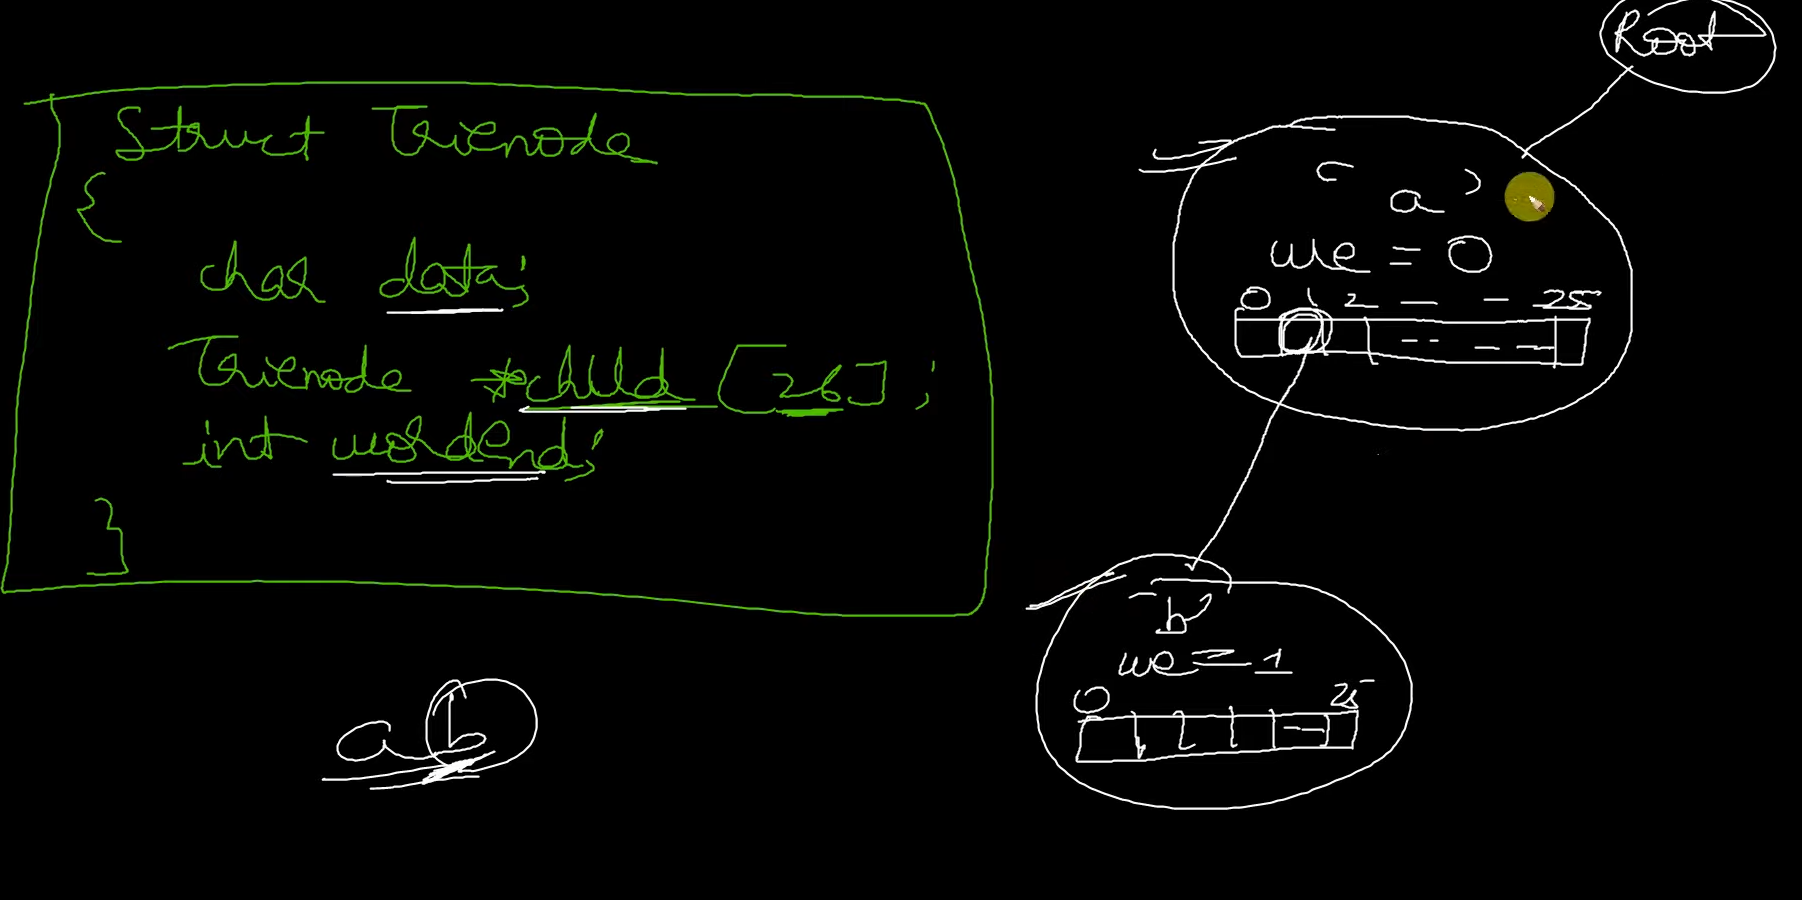 Struct Trienode
{
char data;
Trienode *child [26];
int wordend;
}
ab
Root
'a'
we = 0
0 1 2 — - 25
'b'
we = 1
0 25